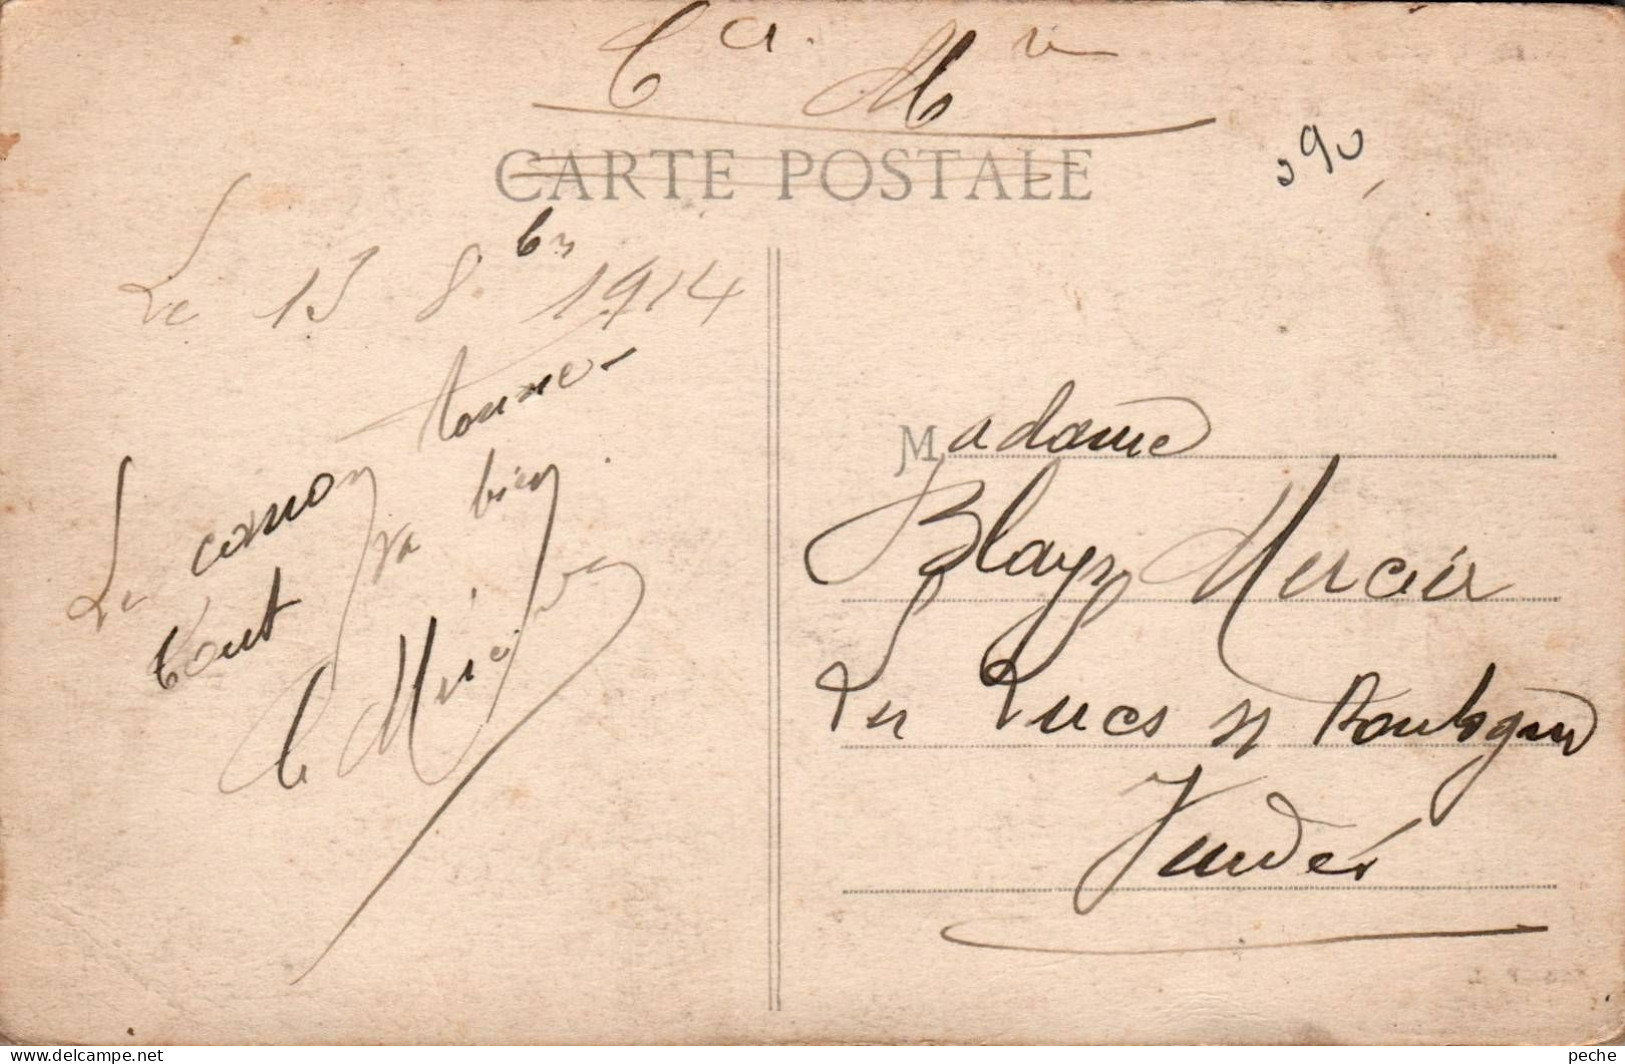 Cci. Mre
CARTE POSTALE
390
Le 13 8bre 1914
Le canon tonne
tout va bien
C. Mercier
Madame
Blayz Mercier
Les Lucs s/ Boulogne
Vendée
© www.delcampe.net
peche